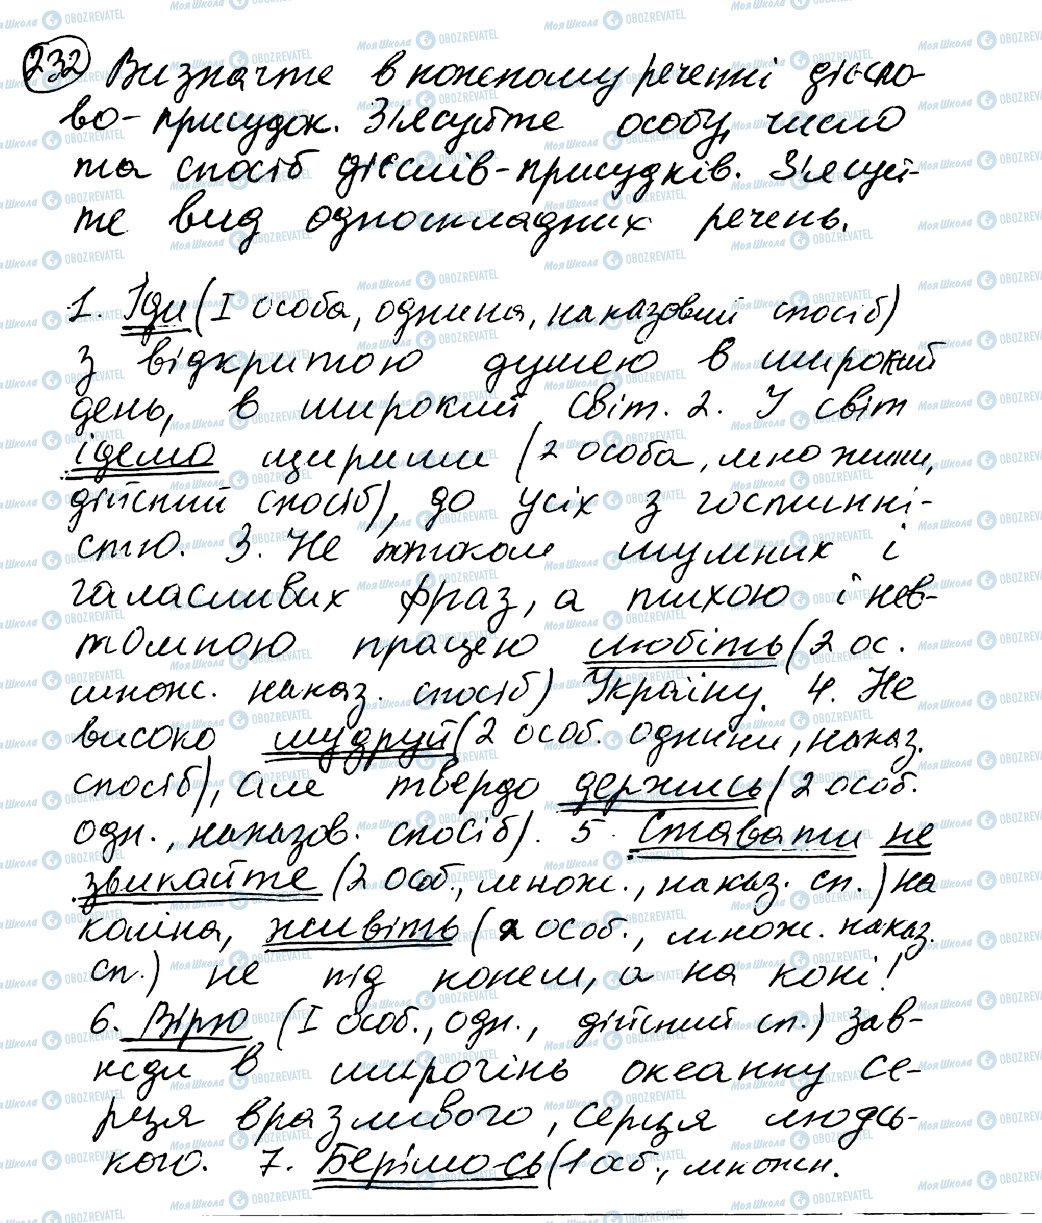 232 Визначте в кожному реченні дієсло-
во-присудок. З'ясуйте особу, число
та спосіб дієслів-присудків. З'ясуй-
те вид односкладних речень.
1. Іди (І особа, однина, наказовий спосіб)
з відкритою душею в широкий
день, в широкий світ. 2. У світ
ідемо щирими (2 особа, множини,
дійсний спосіб), до усіх з гостинні-
стю. 3. Не потоком шумних і
галасливих фраз, а тихою і нев-
томною працею любіть (2 ос.
множ. наказ. спосіб) Україну. 4. Не
високо мудруй (2 особ. однини, наказ.
спосіб), але твердо держись (2 особ.
одн., наказов. спосіб). 5. Ставати не
звикайте (2 особ., множ., наказ. сп.) на
коліна, живіть (2 особ., множ. наказ.
сп.) не під конем, а на коні!
6. Вірю (І особ., одн., дійсний сп.) зав-
жди в широчінь океанну се-
рця вразливого, серця людсь-
кого. 7. Берімось (1 об., множн.